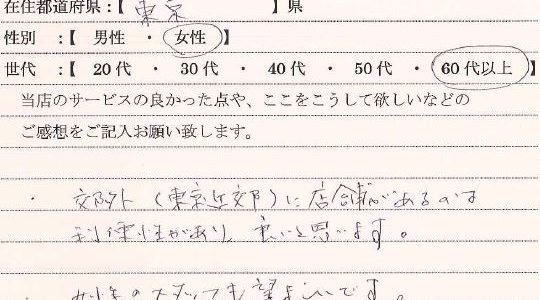 在住都道府県:【 東京 】県
性別 :【 男性 ・ 女性 】
世代 :【 20代 ・ 30代 ・ 40代 ・ 50代 ・ 60代以上 】
当店のサービスの良かった点や、ここをこうして欲しいなどの
ご感想をご記入お願い致します。
・ 郊外(東京近郊)に店舗があるのは
利便性があり、良いと思います。
・ 女性のスタッフも望ましいです。